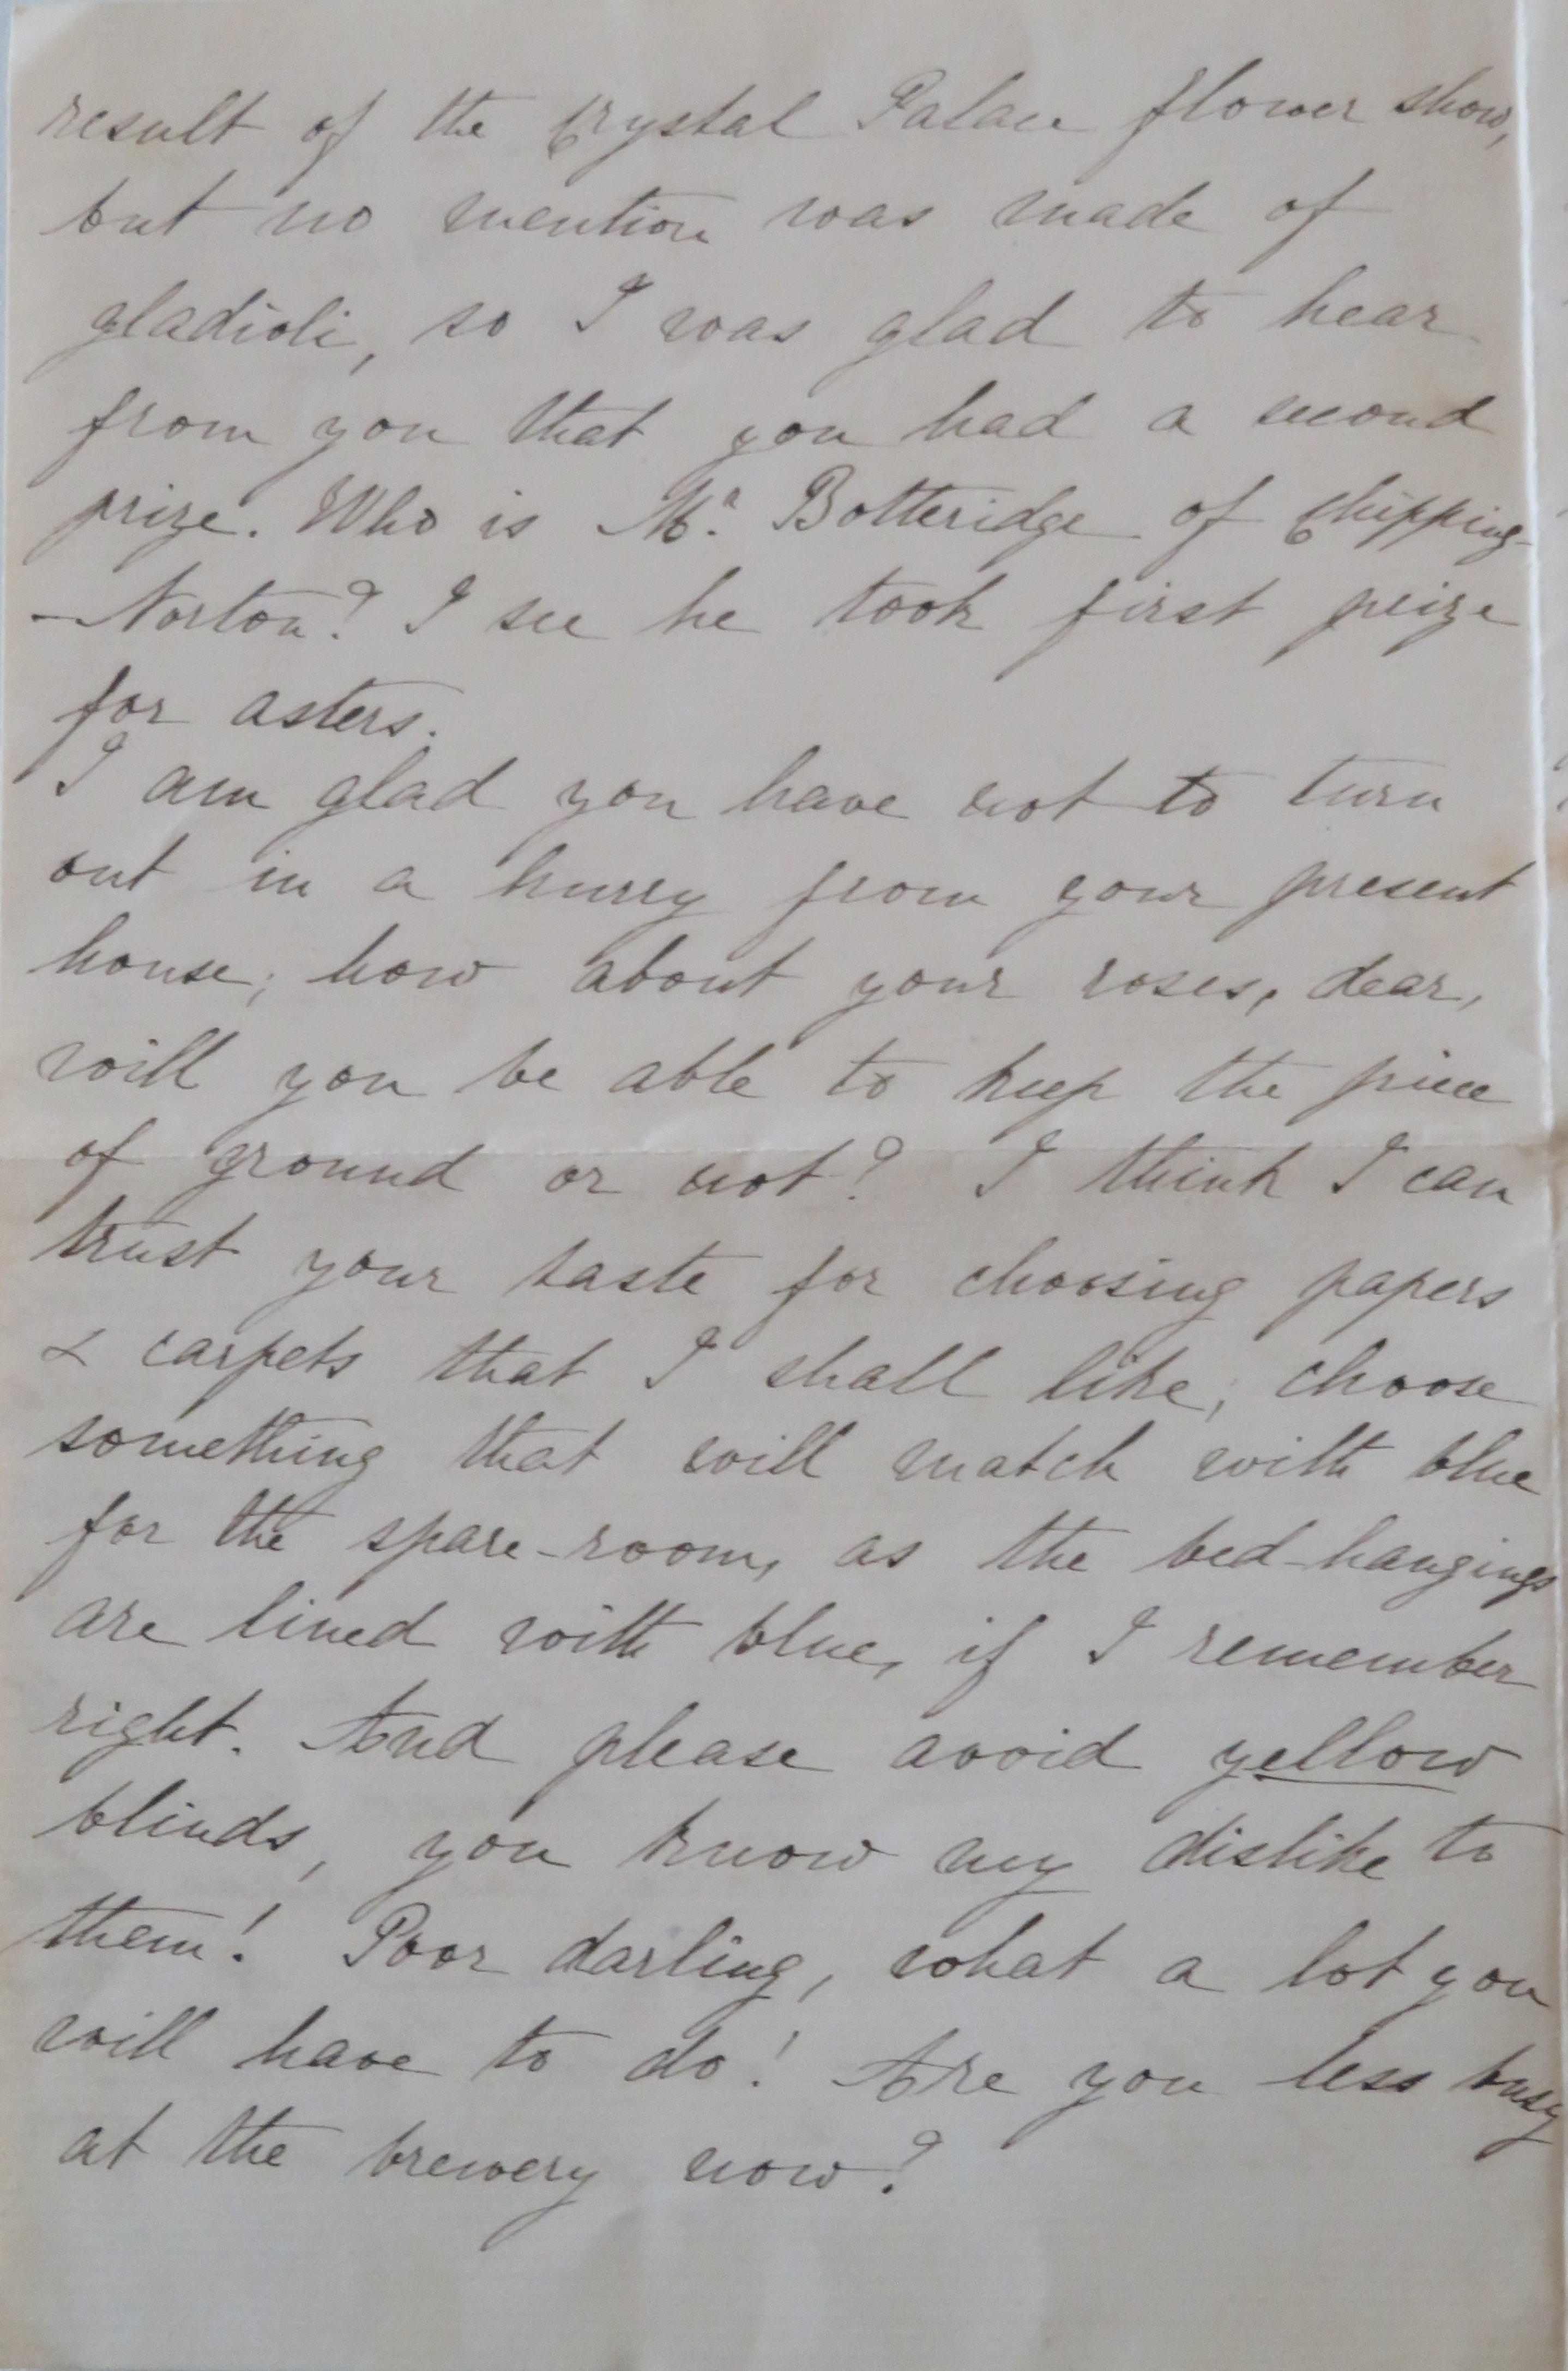 result of the Crystal Palace flower show,
but no mention was made of
gladioli, so I was glad to hear
from you that you had a second
prize. Who is Mr. Botteridge of Chipping-
-Norton? I see he took first prize
for asters.
I am glad you have not to turn
out in a hurry from your present
house; how about your roses, dear,
will you be able to keep the piece
of ground or not? I think I can
trust your taste for choosing papers
& carpets that I shall like; choose
something that will match with blue
for the spare-room, as the bed-hangings
are lined with blue, if I remember
right. And please avoid yellow
blinds, you know my dislike to
them! Poor darling, what a lot you
will have to do! Are you less busy
at the brewery now?